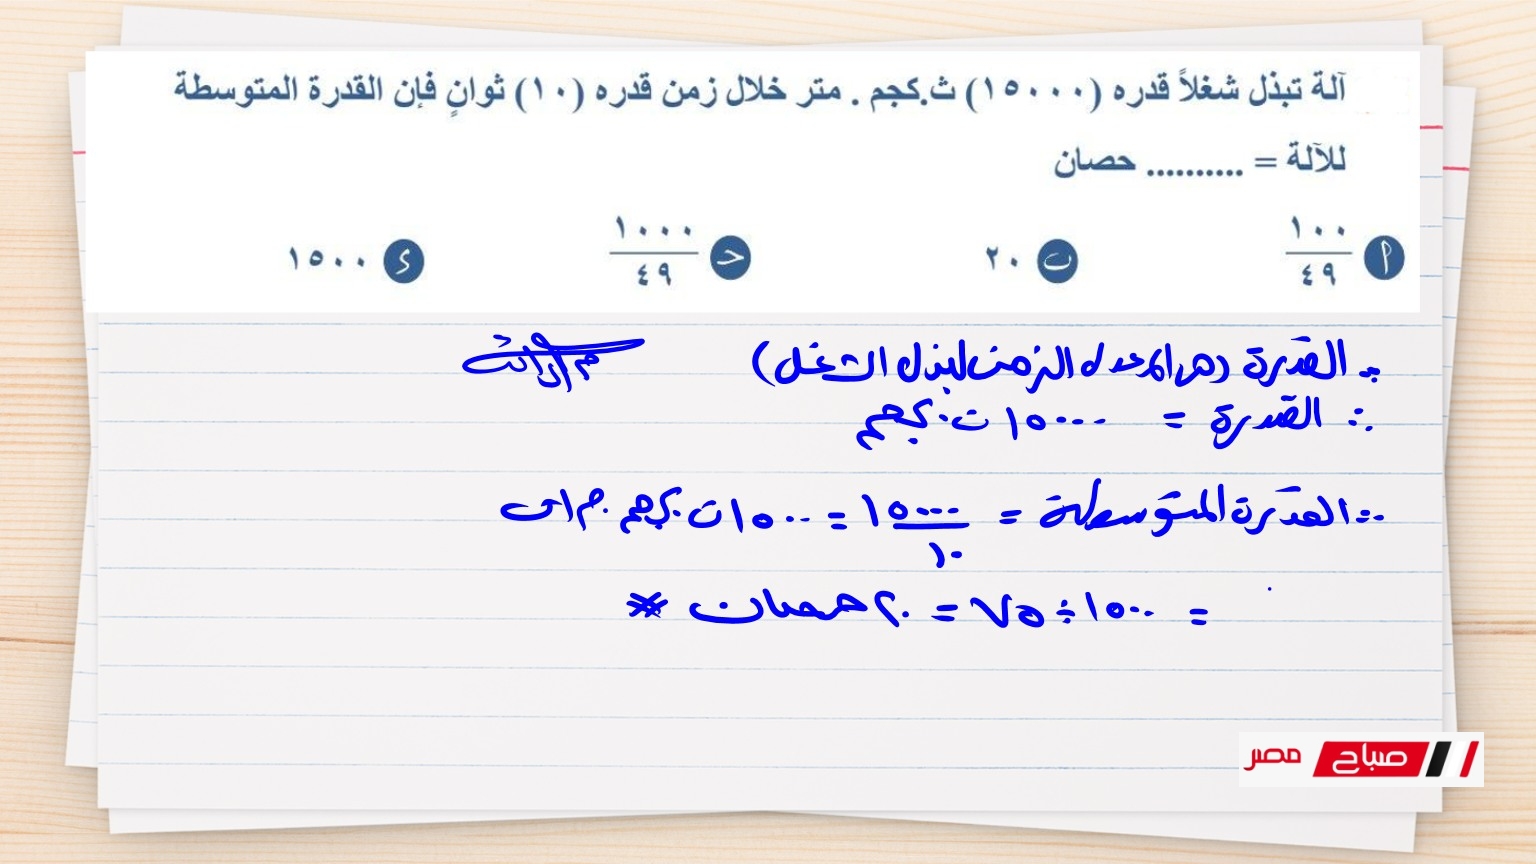 آلة تبذل شغلاً قدره (١٥٠٠٠) ث.كجم . متر خلال زمن قدره (١٠) ثوانٍ فإن القدرة المتوسطة
للآلة = .......... حصان
أ ١٠٠/٤٩ ب ٢٠ ح ١٠٠٠/٤٩ ء ١٥٠٠
∵ القدرة (هى المعدل الزمنى لبذل الشغل)
∴ القدرة = ١٥٠٠٠ ث.كجم
∴ القدرة المتوسطة = ١٥٠٠٠/١٠ = ١٥٠٠ ث.كجم.م/ث
= ١٥٠٠ ÷ ٧٥ = ٢٠ حصان *
صباح مصر